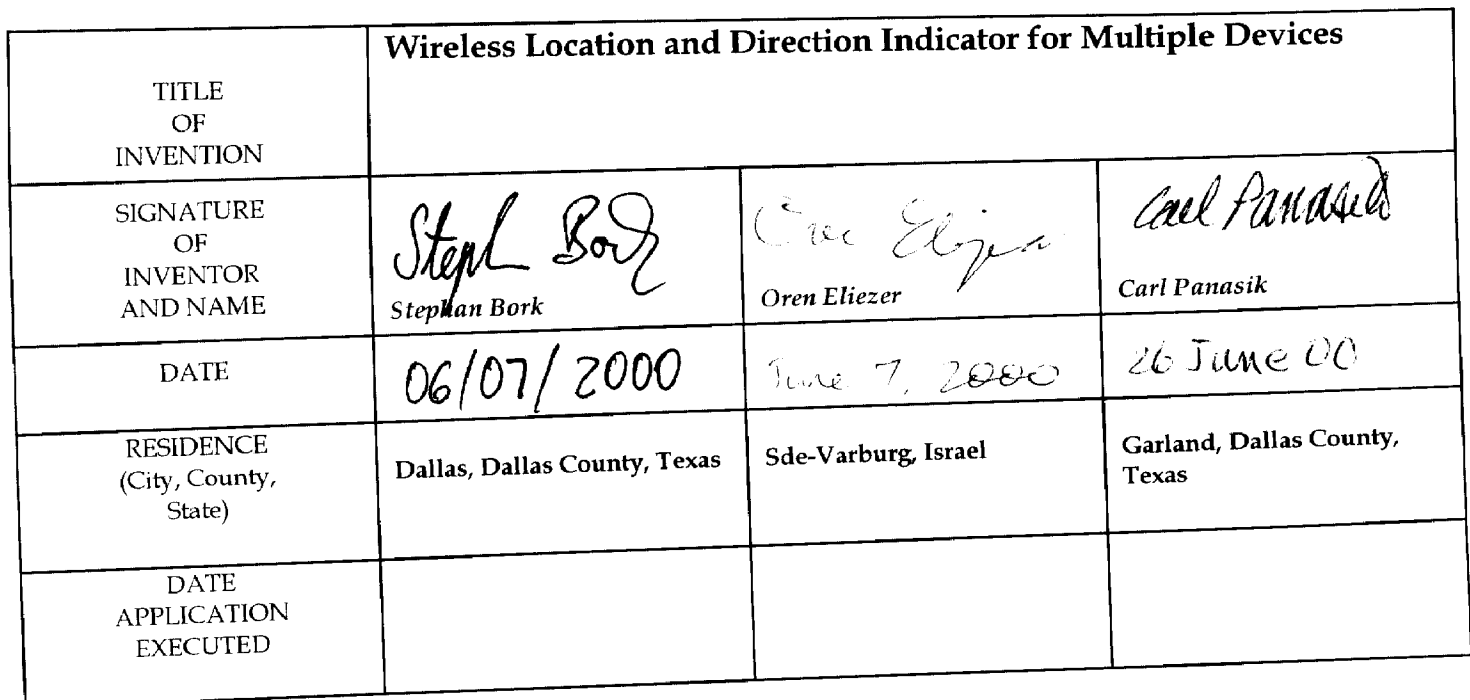 TITLE
OF
INVENTION
Wireless Location and Direction Indicator for Multiple Devices
SIGNATURE
OF
INVENTOR
AND NAME
Steph Bork
Stephan Bork
Oren Eliezer
Carl Panasik
Carl Panasik
DATE
06/07/2000
June 7, 2000
26 June 00
RESIDENCE
(City, County,
State)
Dallas, Dallas County, Texas
Sde-Varburg, Israel
Garland, Dallas County,
Texas
DATE
APPLICATION
EXECUTED